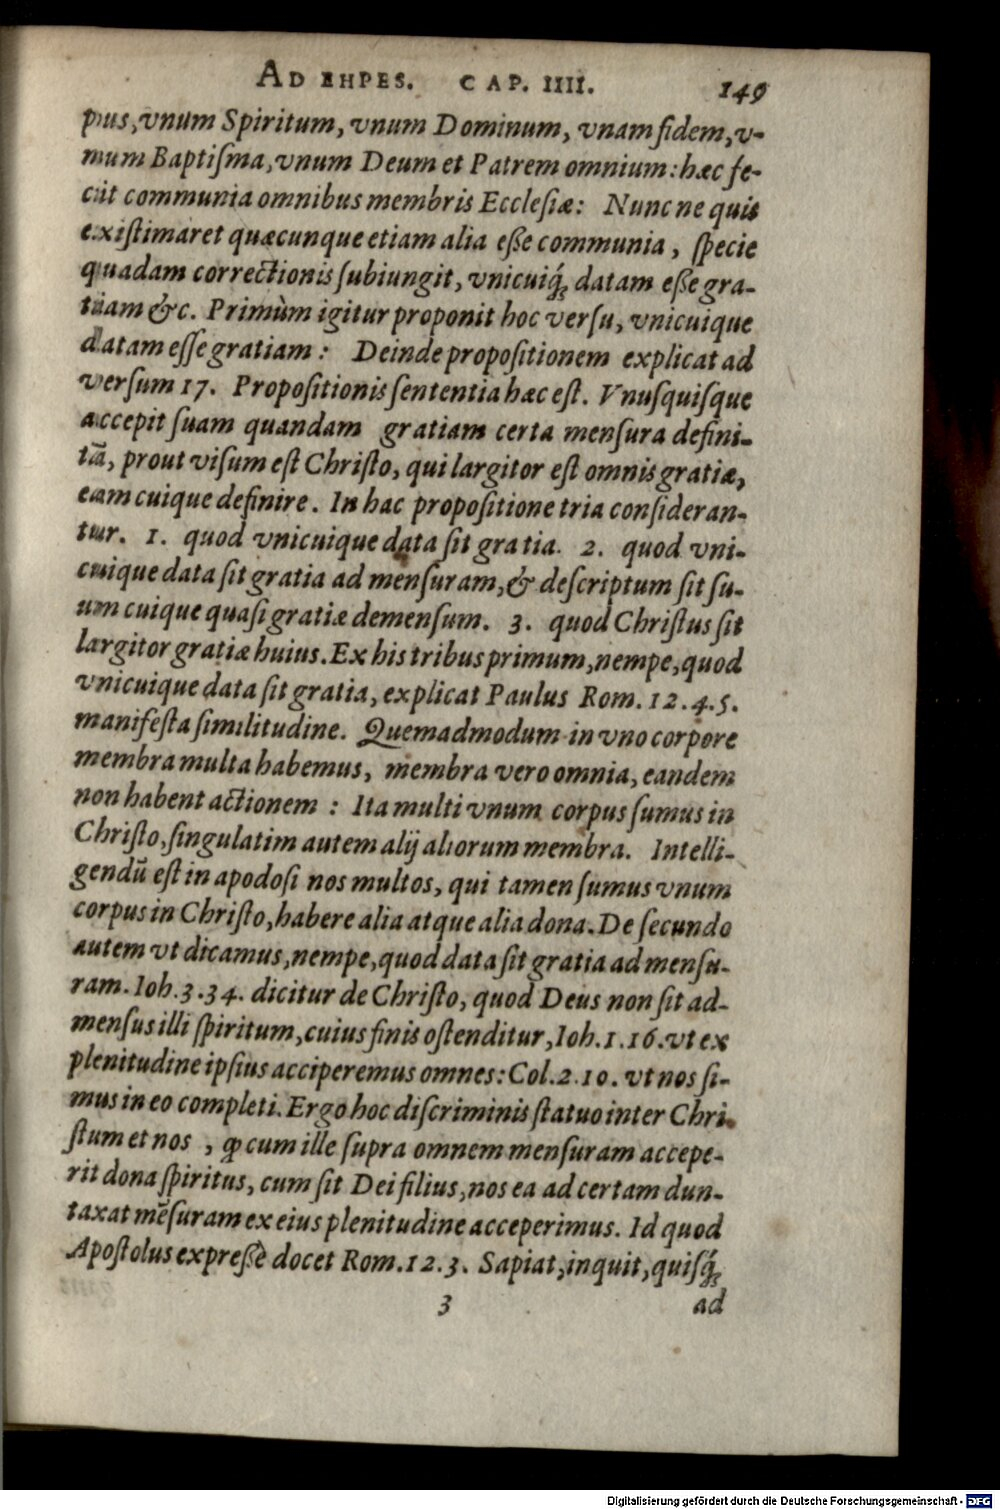 AD EHPES. CAP. IIII. 149
pus, vnum Spiritum, vnum Dominum, vnam fidem, v-
num Baptiſma, vnum Deum et Patrem omnium: hæc fe-
cit communia omnibus membris Eccleſiæ: Nunc ne quis
exiſtimaret quæcunque etiam alia eße communia, ſpecie
quadam correctionis ſubiungit, vnicuiq́; datam eße gra-
tiam &c. Primùm igitur proponit hoc verſu, vnicuique
datam eſſe gratiam: Deinde propoſitionem explicat ad
verſum 17. Propoſitionis ſententia hæc eſt. Vnuſquiſque
accepit ſuam quandam gratiam certa menſura defini-
tã, prout viſum eſt Chriſto, qui largitor eſt omnis gratiæ,
eam cuique definire. In hac propoſitione tria conſideran-
tur. 1. quod vnicuique data ſit gratia. 2. quod vni-
cuique data ſit gratia ad menſuram, & deſcriptum ſit ſu-
um cuique quaſi gratiæ demenſum. 3. quod Chriſtus ſit
largitor gratiæ huius. Ex his tribus primum, nempe, quod
vnicuique data ſit gratia, explicat Paulus Rom. 12.4.5.
manifeſta ſimilitudine. Quemadmodum in vno corpore
membra multa habemus, membra vero omnia, eandem
non habent actionem: Ita multi vnum corpus ſumus in
Chriſto, ſingulatim autem alij aliorum membra. Intelli-
gendũ eſt in apodoſi nos multos, qui tamen ſumus vnum
corpus in Chriſto, habere alia atque alia dona. De ſecundo
autem vt dicamus, nempe, quod data ſit gratia ad menſu-
ram. Ioh. 3.34. dicitur de Chriſto, quod Deus non ſit ad-
menſus illi ſpiritum, cuius finis oſtenditur, Ioh. 1.16. vt ex
plenitudine ipſius acciperemus omnes: Col. 2.10. vt nos ſi-
mus in eo completi. Ergo hoc diſcriminis ſtatuo inter Chri-
ſtum et nos, ꝙ cum ille ſupra omnem menſuram accepe-
rit dona ſpiritus, cum ſit Dei filius, nos ea ad certam dun-
taxat mẽſuram ex eius plenitudine acceperimus. Id quod
Apoſtolus expreßè docet Rom. 12.3. Sapiat, inquit, quiſq́;
3 ad
Digitalisierung gefördert durch die Deutsche Forschungsgemeinschaft - DFG